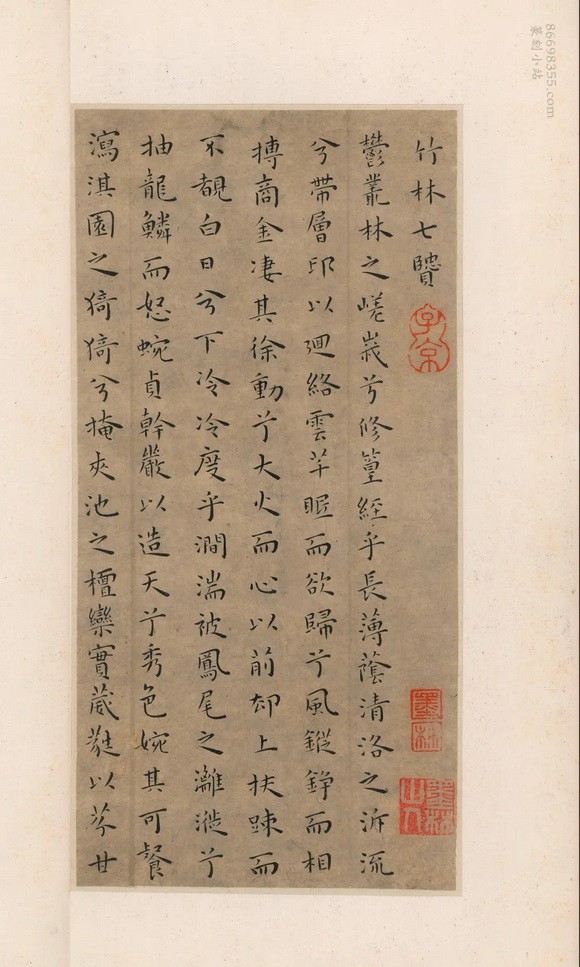 竹林七賢
鬱叢林之嵯峩兮修篁經乎長薄蔭清洛之泝流
兮帶層邱以迴絡雲芊眠而欲歸兮風鏦錚而相
摶商金淒其徐動兮大火而心以前却上扶踈而
不覩白日兮下冷冷度乎澗湍被鳳尾之灕漇兮
抽龍鱗而怒蜿貞幹嚴以造天兮秀色婉其可餐
瀉淇園之猗猗兮掩夾池之檀欒實葳蕤以芬甘
子京
墨林
86698355.com
篆刻小站